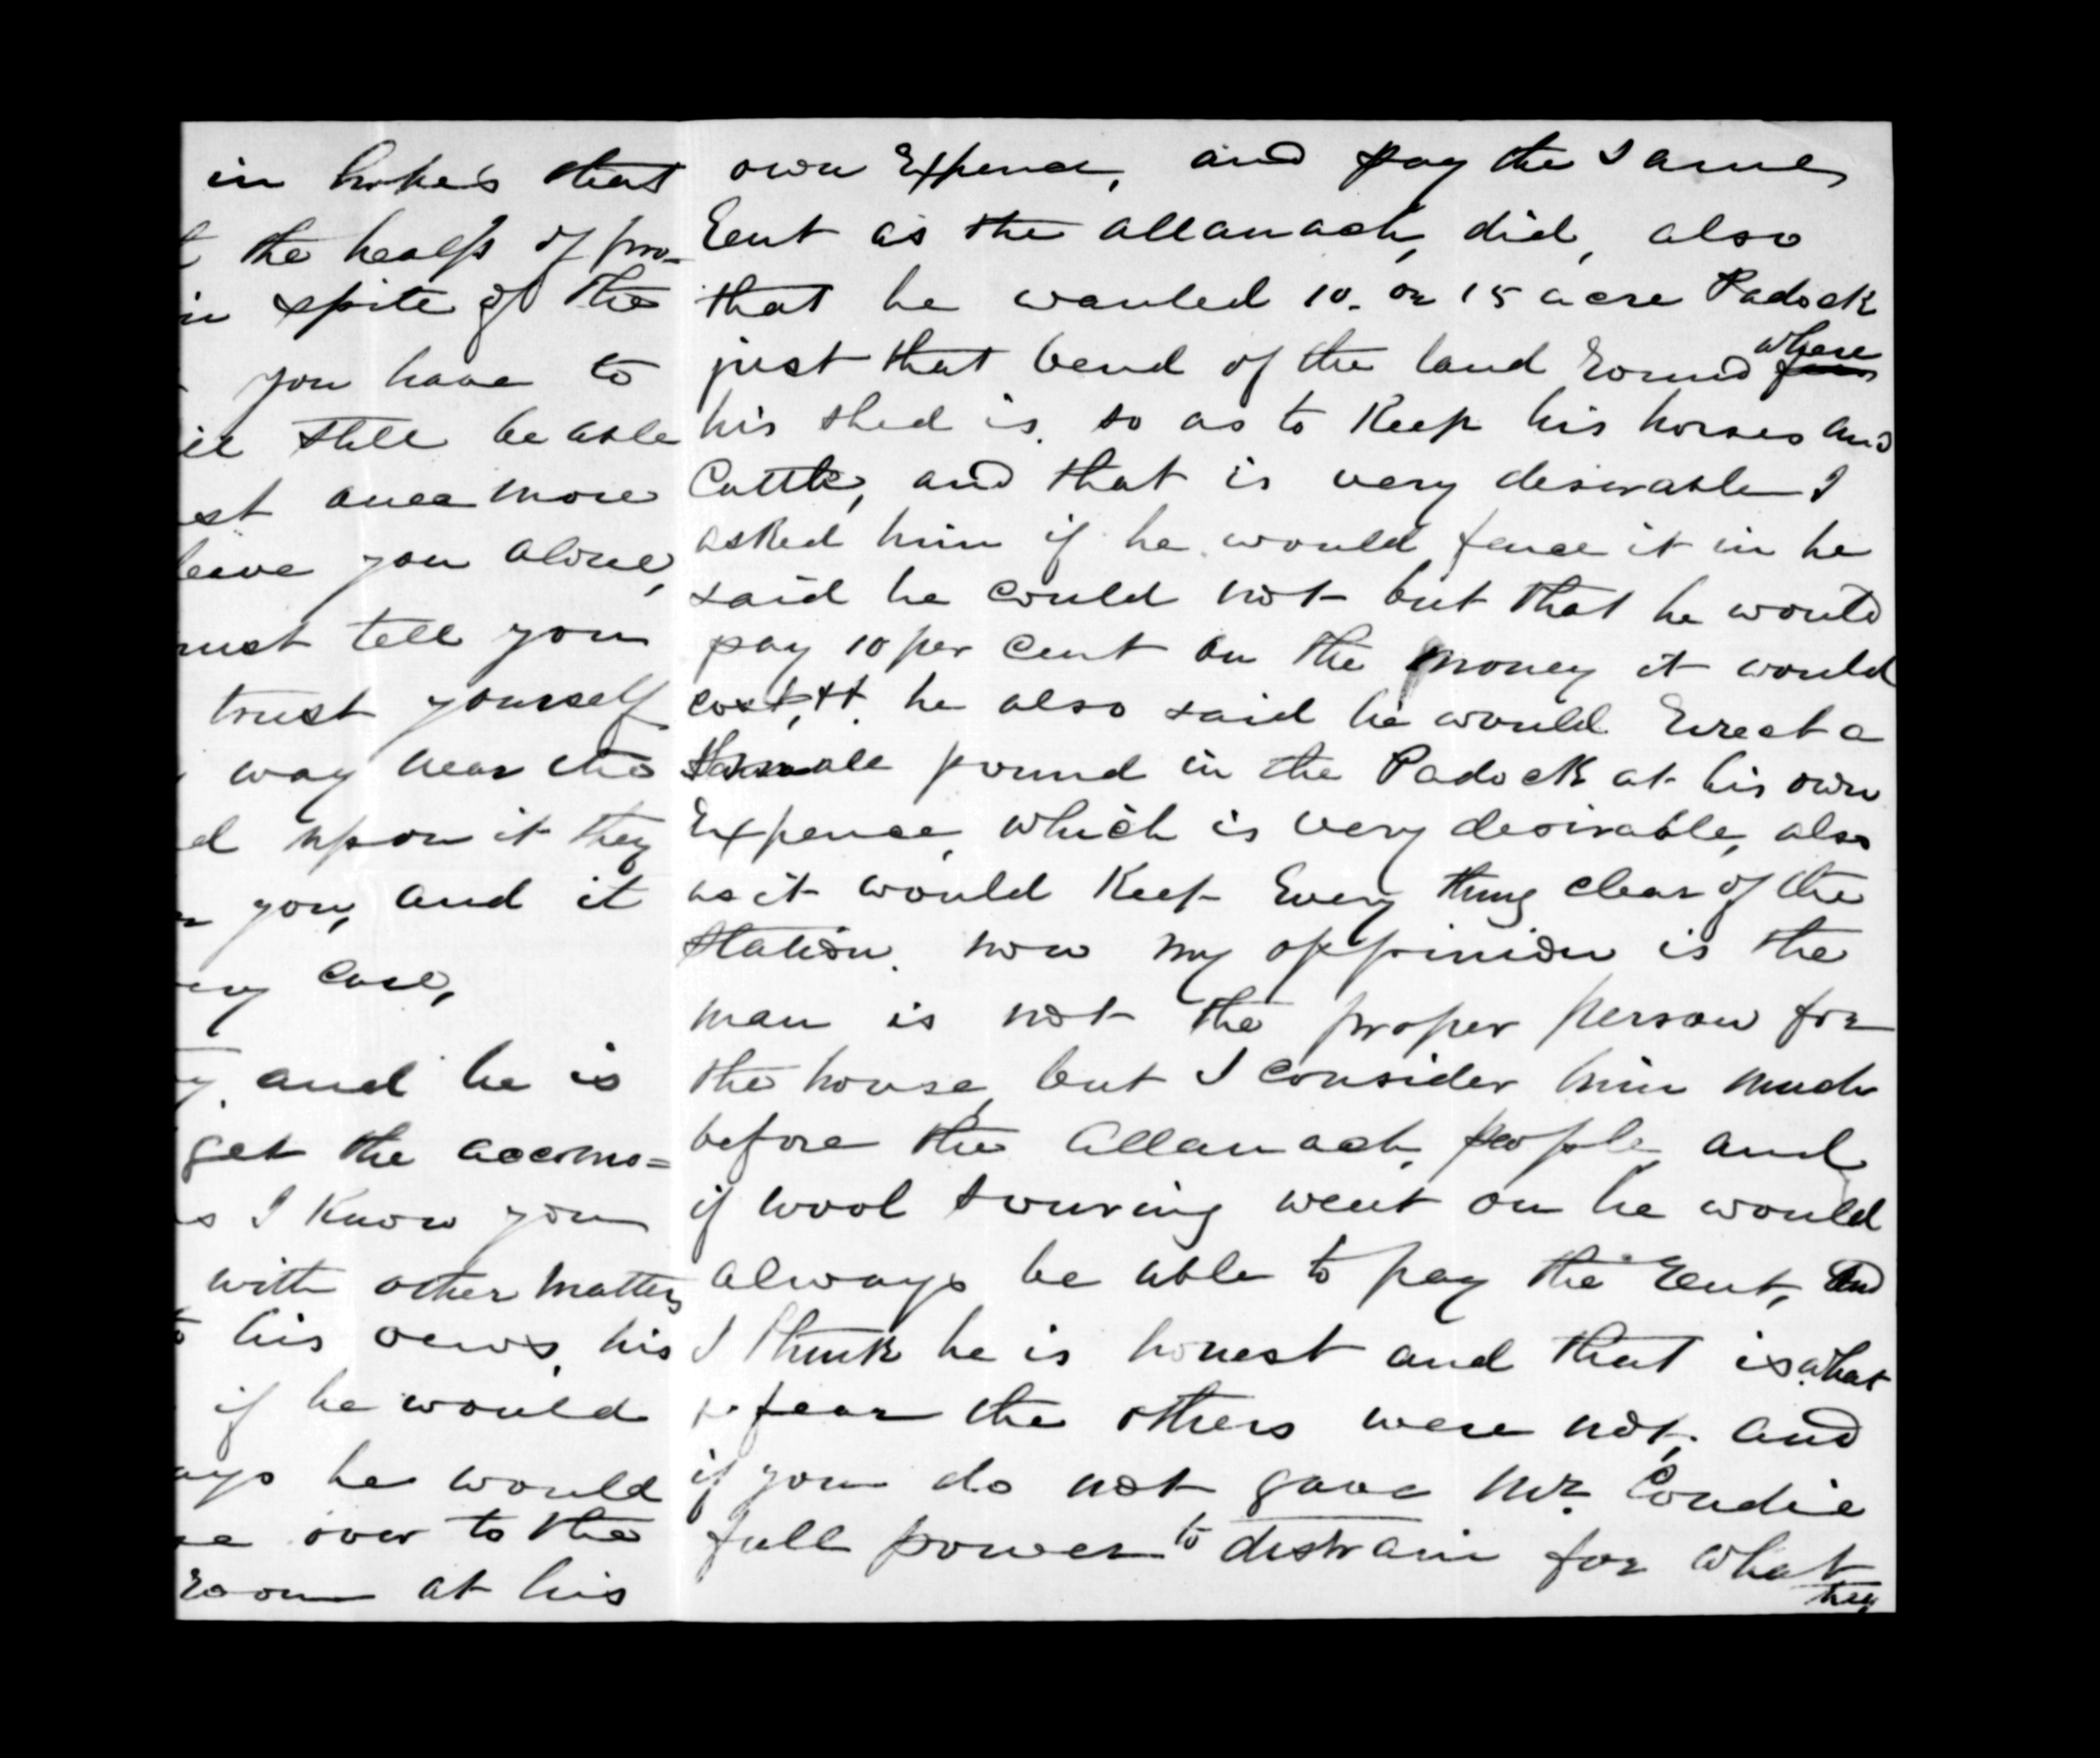 in hopes that
the healp of pro-
in spite of the
you have to
still be able
once more
leave you alone,
must tell you
trust yourself
way near the
upon it they
you, and it
case,
and he is
get the accomo=
I Know you
with other matters
his vews, his
if he would
he would
over to the
room at his
own Expence, and pay the same
Rent as the allanach, did, also
that he wanted 10. or 15 acre Padock
just that bend of the land Round where
his shed is, so as to Keep his horses and
Cattle, and that is very desirable I
asked him if he would fence it in he
said he could not but that he would
pay 10 per cent on the money it would
cost, he also said he would Erect a
small pound in the Padock at his own
Expence, which is very desirable, also
as it would Keep Every thing clear of the
Station. now my oppinion is the
man is not the proper person for
the house, but I consider him much
before the Allanach, people, and
if wool scouring went on he would
always be able to pay the Rent, and
I think he is honest and that is what
fear the others were not, and
if you do not gave Mr. Condie
full power to distrain for what
they